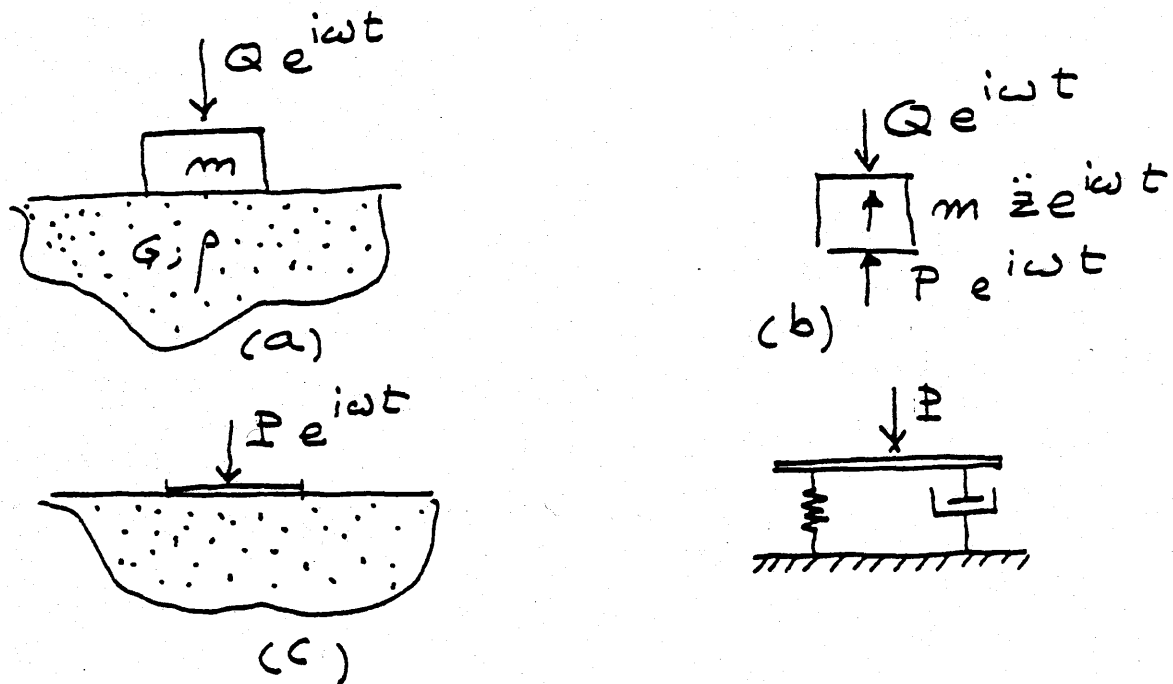 Q e^{iωt}
m
G, ρ
(a)
Q e^{iωt}
m z̈ e^{iωt}
P e^{iωt}
(b)
P e^{iωt}
(c)
P